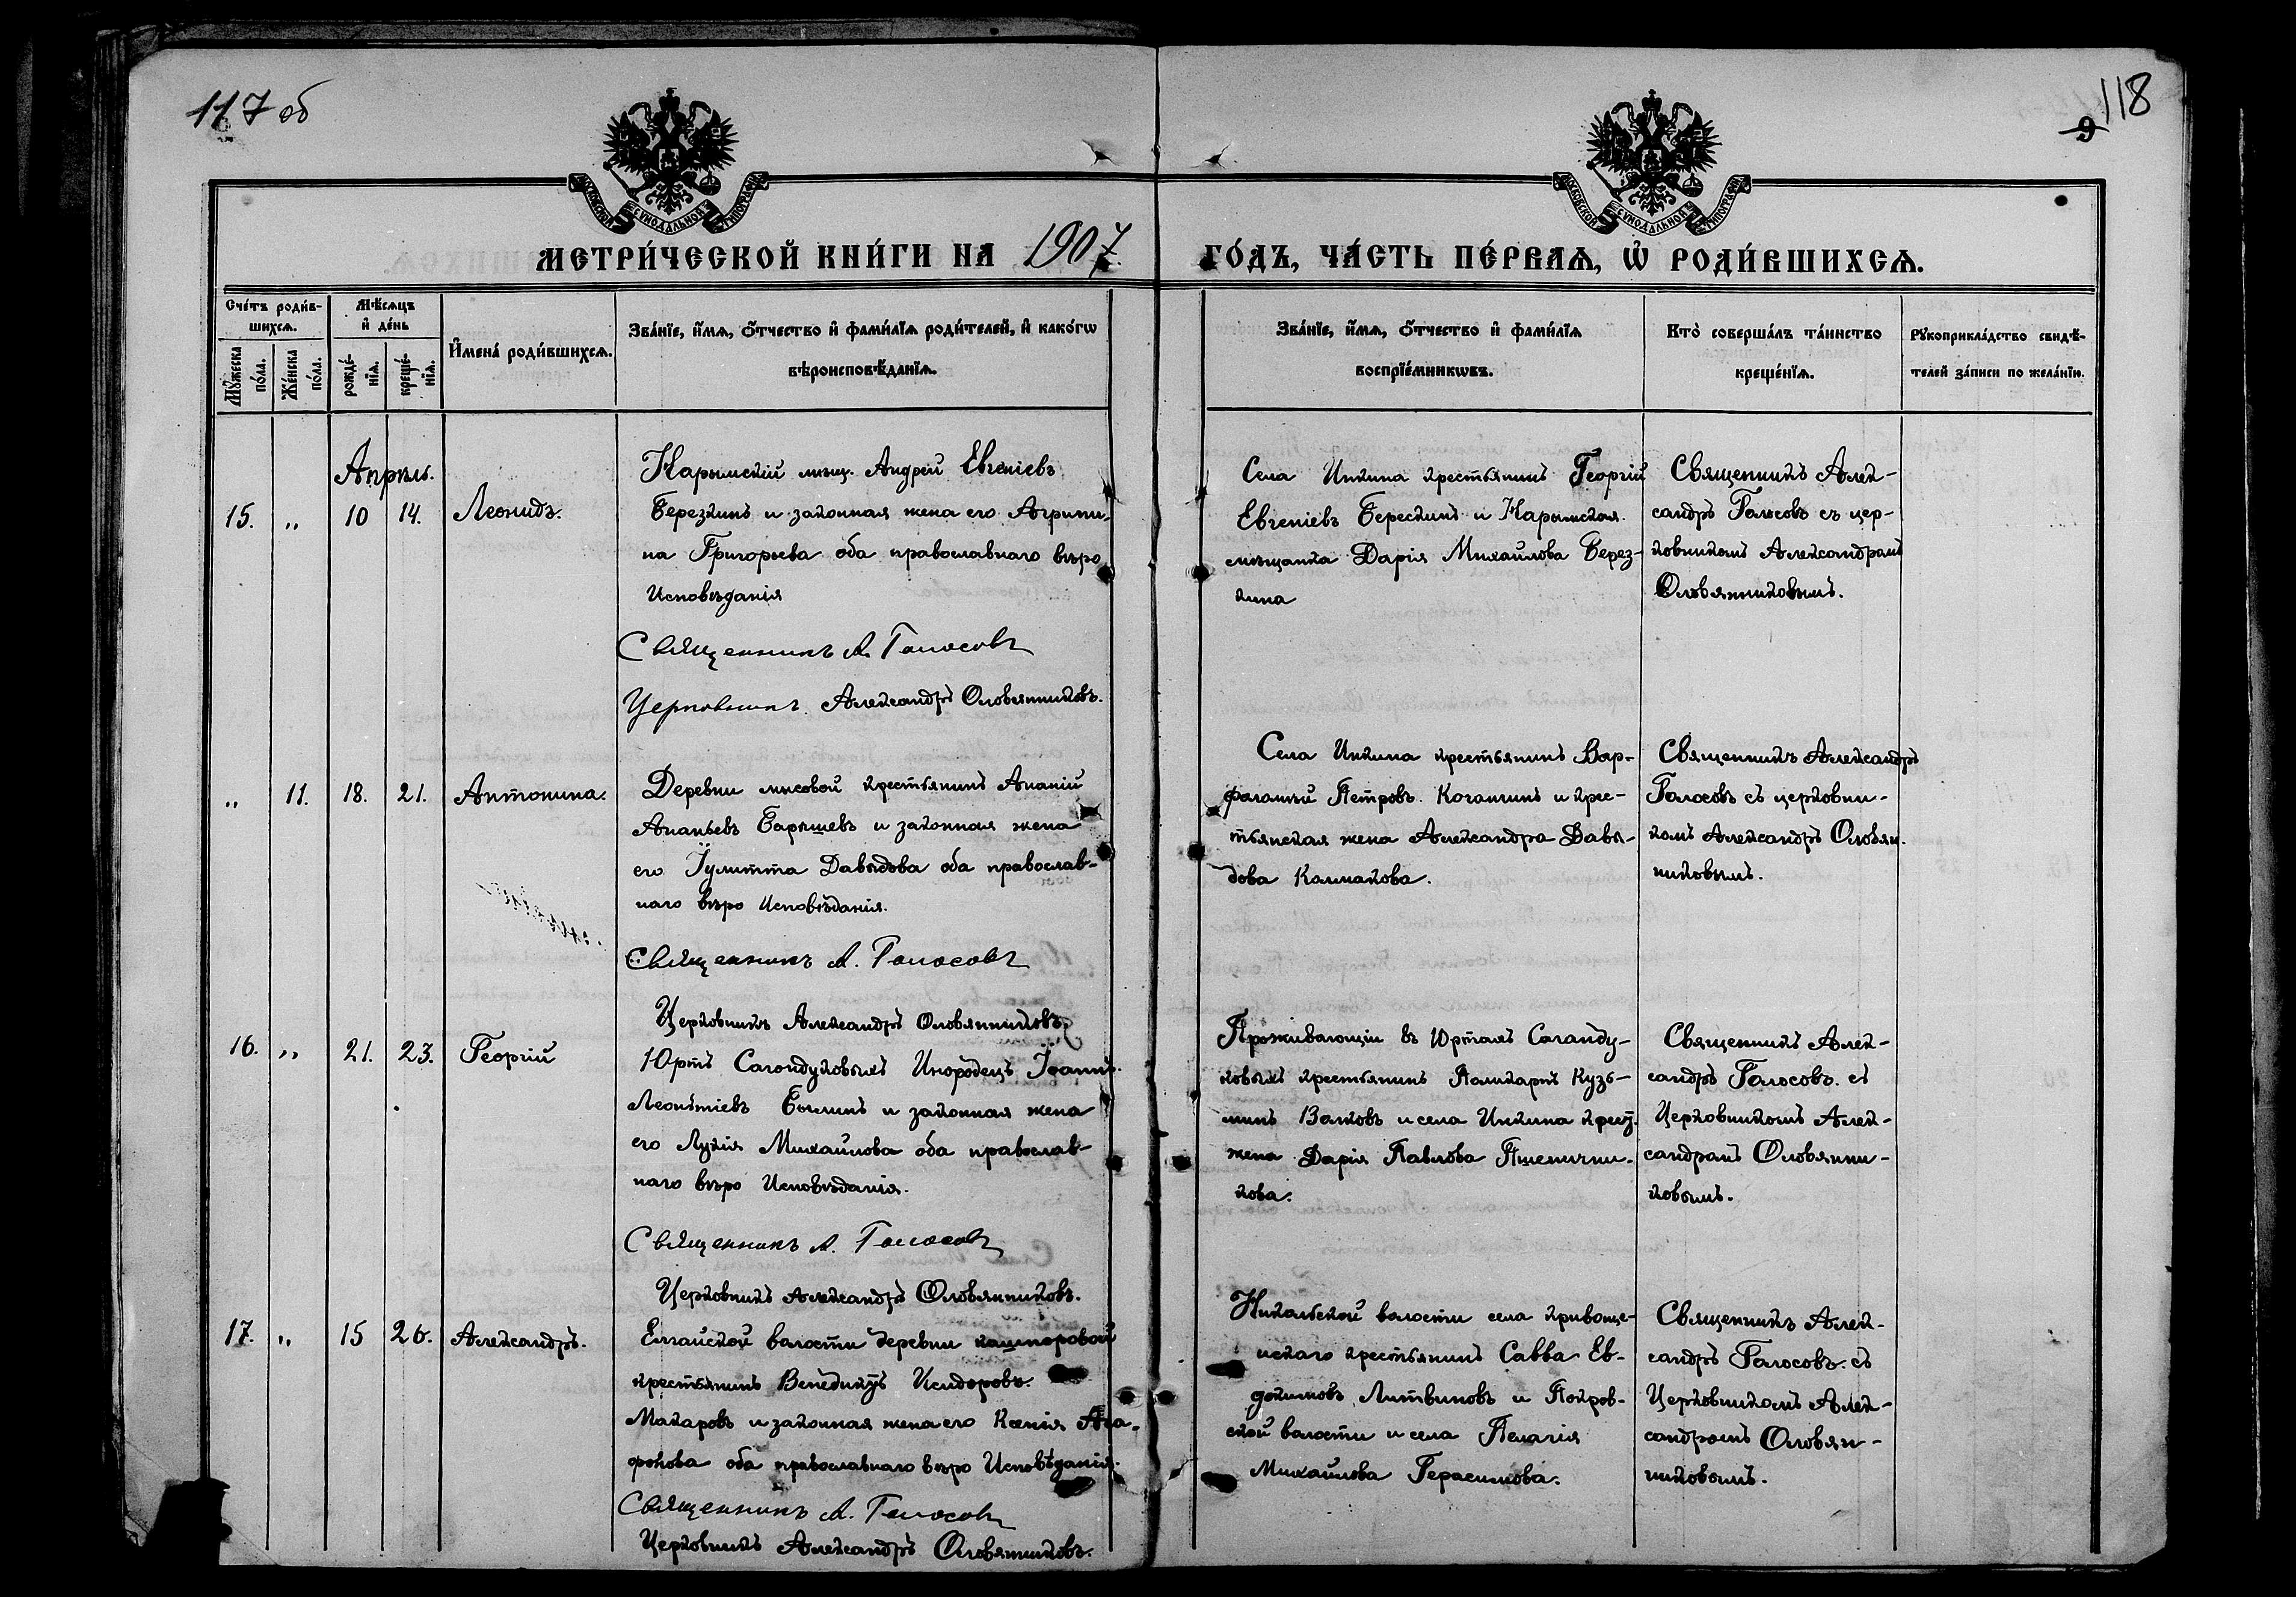 117 об
118
9
МОСКОВСКОЙ СѴНОДАЛЬНОЙ ТИПОГРАФІИ
МОСКОВСКОЙ СѴНОДАЛЬНОЙ ТИПОГРАФІИ
МЕТРИ́ЧЕСКОЙ КНИ́ГИ НА 1907
ГО́ДЪ, ЧА́СТЬ ПЕ́РВАѦ, Ѡ РОДИ́ВШИХСѦ.
Сче́тъ роди́в-
шихсѧ.
Мѣ́сѧцъ
и҆ де́нь
Мꙋ́жеска
по́ла.
Же́нска
по́ла.
рожде́-
нїѧ.
креще́-
нїѧ.
И҆мена̀ роди́вшихсѧ.
Зва́нїе, и҆́мѧ, ѻ҆́тчество и҆ фами́лїѧ роди́телей, и҆ како́гѡ
вѣроисповѣ́данїѧ.
Зва́нїе, и҆́мѧ, ѻ҆́тчество и҆ фами́лїѧ
воспрїе́мникѡвъ.
Кто̀ соверша́лъ та́инство
креще́нїѧ.
Рꙋкоприкла́дство свидѣ́-
телей за́писи по жела́нїю.
Апрѣль.
15. „ 10 14. Леонидъ.
Нарымскій мѣщ. Андрей Евгеніевъ
Березкинъ и законная жена его Агрипи-
на Григорьева оба православнаго вѣро
Исповѣданія
Священникъ А. Голосовъ
Церковникъ Александръ Оловянниковъ.
Села Инкина крестьянинъ Георгій
Евгеніевъ Берескинъ и Нарымская
мѣщанка Дарія Михайлова Берез-
кина
Священникъ Алек-
сандръ Голосовъ съ цер-
ковникомъ Александромъ
Оловянниковымъ.
„ 11. 18. 21. Антонина.
Деревни мысовой крестьянинъ Ананій
Ананьевъ Барышевъ и законная жена
его Іулитта Давыдова оба православ-
наго вѣро Исповѣданія.
Священникъ А. Голосовъ
Церковникъ Александръ Оловянниковъ.
Села Инкина крестьянинъ Вар-
фаломѣй Петровъ Кочангинъ и крес-
тьянская жена Александра Давы-
дова Колмакова.
Священникъ Александръ
Голосовъ съ церковни-
комъ Александръ Оловян-
никовымъ.
16. „ 21. 23. Георгій
Юртъ Сагондуковыхъ Инородецъ Іоаннъ
Леонтіевъ и законная жена
его Лукія Михайлова оба православ-
наго вѣро Исповѣданія.
Священникъ А. Голосовъ
Церковникъ Александръ Оловянниковъ.
Проживающіи въ Юртахъ Саганду-
ковыхъ крестьянинъ Поликарпъ Кузь-
минъ Волковъ и села Инкина крест.
жена Дарія Павлова Пшенични-
кова.
Священникъ Алек-
сандръ Голосовъ съ
Церковникомъ Алек-
сандромъ Оловянни-
ковымъ.
17. „ 15 26. Александръ.
Елгайской волости деревни кашпоровой
крестьянинъ Венедиктъ Исидоровъ
Макаровъ и законная жена его Ксенія Ага-
фонова оба православнаго вѣро Исповѣданія.
Священникъ А. Голосовъ
Церковникъ Александръ Оловянниковъ.
Никольской волости села кривоше-
инскаго крестьянинъ Савва Ев-
докимовъ Литвиновъ и Покров-
ской волости и села Пелагія
Михайлова Герасимова.
Священникъ Алек-
сандръ Голосовъ съ
Церковникомъ Алек-
сандромъ Оловян-
никовымъ.